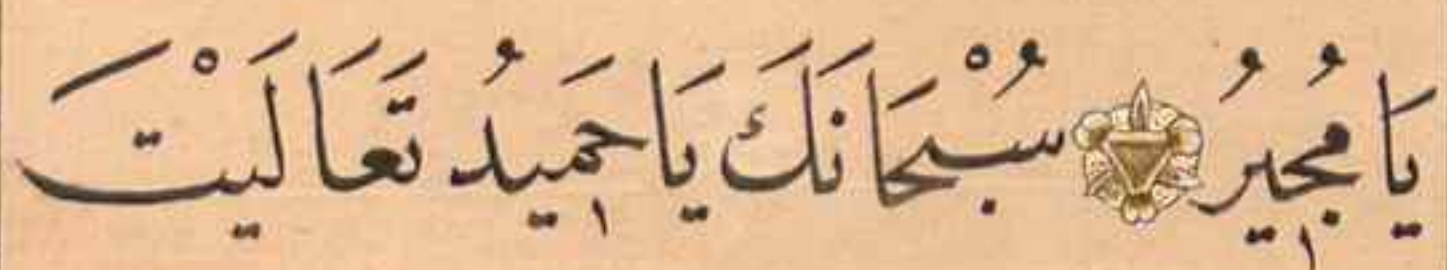 يَا مُجِيرُ سُبْحَانَكَ يَا حَمِيدُ تَعَالَيْتَ